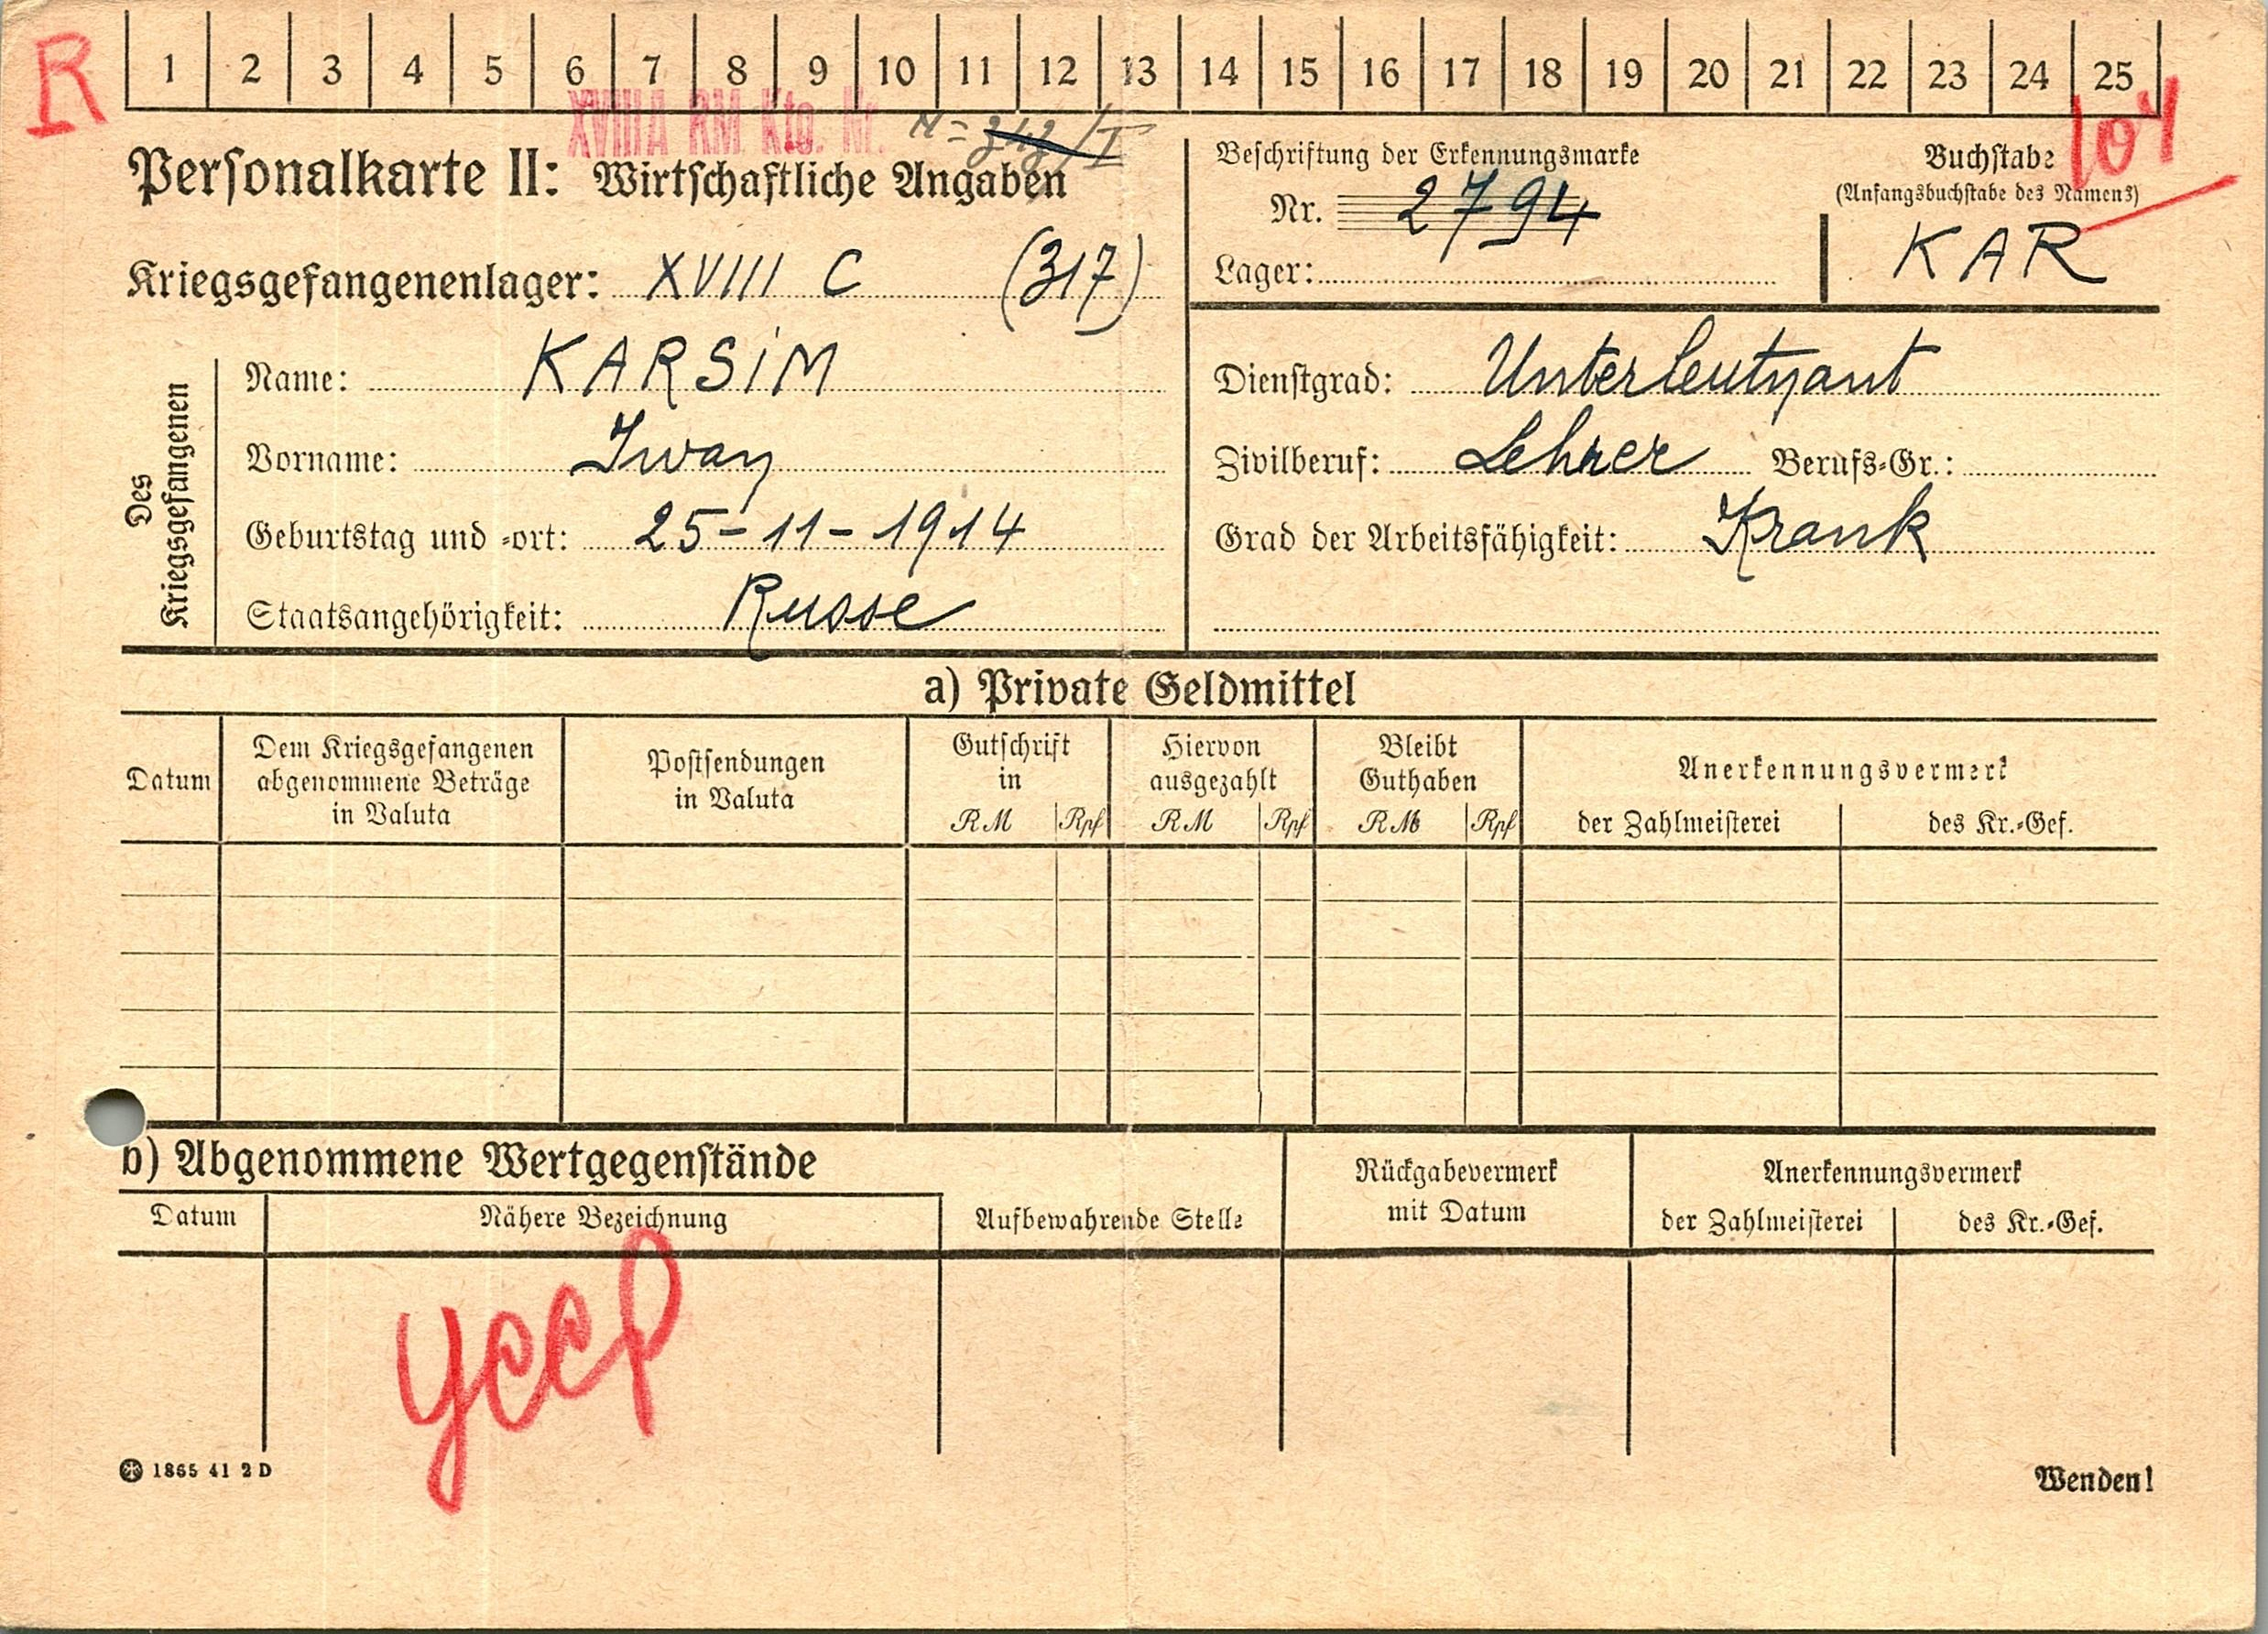 R
1 2 3 4 5 6 7 8 9 10 11 12 13 14 15 16 17 18 19 20 21 22 23 24 25
XVIII A RM Kto. Nr.
104
Personalkarte II: Wirtschaftliche Angaben
Beschriftung der Erkennungsmarke
Nr. 2794
Lager:
Buchstabe
(Anfangsbuchstabe des Namens)
KAR
Kriegsgefangenenlager: XVIII C (317)
Des Kriegsgefangenen
Name: KARSIM
Vorname: Iwan
Geburtstag und -ort: 25-11-1914
Staatsangehörigkeit: Russe
Dienstgrad: Unterleutnant
Zivilberuf: Lehrer Berufs-Gr.:
Grad der Arbeitsfähigkeit: Krank
a) Private Geldmittel
Datum
Dem Kriegsgefangenen
abgenommene Beträge
in Valuta
Postsendungen
in Valuta
Gutschrift
in
RM Rpf
Hiervon
ausgezahlt
RM Rpf
Bleibt
Guthaben
RM Rpf
Anerkennungsvermerk
der Zahlmeisterei des Kr.-Gef.
b) Abgenommene Wertgegenstände
Datum
Nähere Bezeichnung
Aufbewahrende Stelle
Rückgabevermerk
mit Datum
Anerkennungsvermerk
der Zahlmeisterei des Kr.-Gef.
УССР
1865 41 2 D
Wenden!